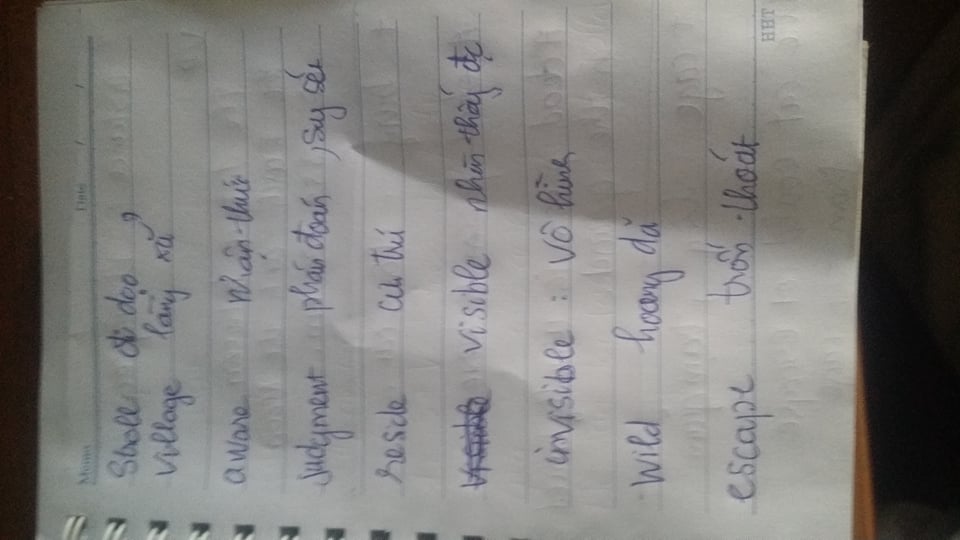 Memo Date / /
Stroll đi dạo
village làng xã
aware nhận thức
judgment phán đoán, suy xét
reside cư trú
visible nhìn thấy đc
invisible : vô hình
wild hoang dã
escape trốn thoát
HHT